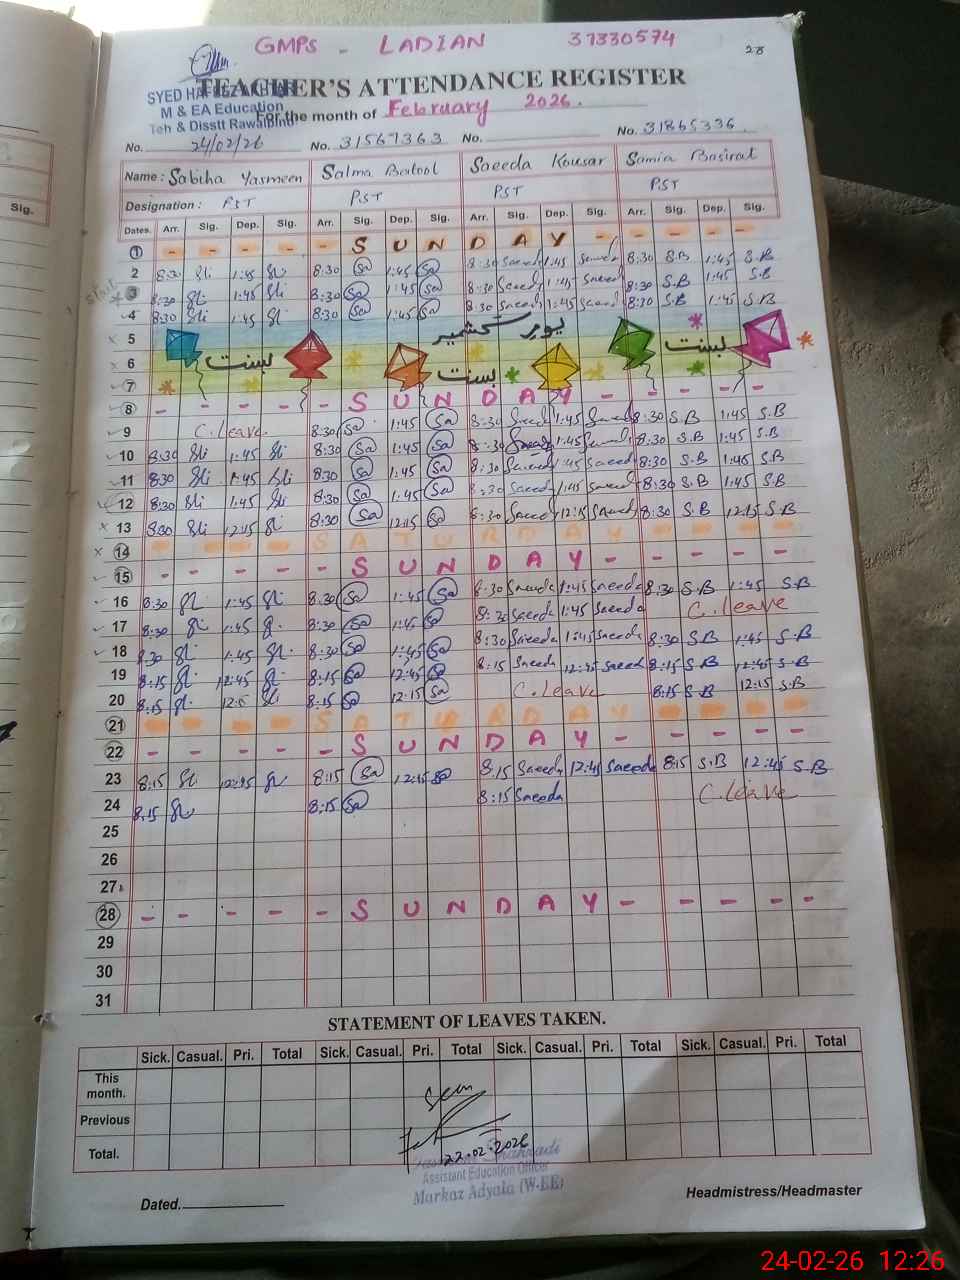 GMPS - LADIAN 37330574
28
TEACHER'S ATTENDANCE REGISTER
M & EA Education
Teh & Disstt Rawalpindi
For the month of February 2026.
24/02/26
No. No. 31567363 No. No. 31865336
Name: Sabiha Yasmeen Salma Batool Saeeda Kousar Samia Basirat
Designation: PST PST PST PST
Dates. Arr. Sig. Dep. Sig. Arr. Sig. Dep. Sig. Arr. Sig. Dep. Sig. Arr. Sig. Dep. Sig.
1 - - - - - S U N D A Y - - - - -
2 8:30 1:45 8:30 Sa 1:45 Sa 8:30 Saeeda 1:45 Saeeda 8:30 S.B 1:45 S.B
3 8:30 1:45 8:30 Sa 1:45 Sa 8:30 Saeeda 1:45 Saeeda 8:30 S.B 1:45 S.B
4 8:30 1:45 8:30 Sa 1:45 Sa 8:30 Saeeda 1:45 Saeeda 8:30 S.B 1:45 S.B
5 یوم کشمیر
6 بسنت بسنت بسنت
7
8 - - - - - S U N D A Y - - - - -
9 C. leave 8:30 Sa 1:45 Sa 8:30 Saeeda 1:45 Saeeda 8:30 S.B 1:45 S.B
10 8:30 1:45 8:30 Sa 1:45 Sa 8:30 Saeeda 1:45 Saeeda 8:30 S.B 1:45 S.B
11 8:30 1:45 8:30 Sa 1:45 Sa 8:30 Saeeda 1:45 Saeeda 8:30 S.B 1:45 S.B
12 8:30 1:45 8:30 Sa 1:45 Sa 8:30 Saeeda 1:45 Saeeda 8:30 S.B 1:45 S.B
13 8:30 12:15 8:30 Sa 12:15 Sa 8:30 Saeeda 12:15 Saeeda 8:30 S.B 12:15 S.B
14 S A T U R D A Y
15 - - - - - S U N D A Y - - - - -
16 8:30 1:45 8:30 Sa 1:45 Sa 8:30 Saeeda 1:45 Saeeda 8:30 S.B 1:45 S.B
17 8:30 1:45 8:30 Sa 1:45 Sa 8:30 Saeeda 1:45 Saeeda C. leave
18 8:30 1:45 8:30 Sa 1:45 Sa 8:30 Saeeda 1:45 Saeeda 8:30 S.B 1:45 S.B
19 8:15 12:45 8:15 Sa 12:45 Sa 8:15 Saeeda 12:45 Saeeda 8:15 S.B 12:45 S.B
20 8:15 8:15 Sa 12:15 Sa C. leave 8:15 S.B 12:15 S.B
21 S A T U R D A Y
22 - - - - - S U N D A Y - - - - -
23 8:15 12:45 8:15 Sa Sa 8:15 Saeeda 12:45 Saeeda 8:15 S.B 12:45 S.B
24 8:15 8:15 Sa 8:15 Saeeda C. leave
25
26
27
28 - - - - - S U N D A Y - - - - -
29
30
31
STATEMENT OF LEAVES TAKEN.
Sick. Casual. Pri. Total Sick. Casual. Pri. Total Sick. Casual. Pri. Total Sick. Casual. Pri. Total
This month.
Previous
Total.
Seen
22-02-2026
Assistant Education Officer
Markaz Adyala (W-EE)
Dated. Headmistress/Headmaster
Sig.
24-02-26 12:26